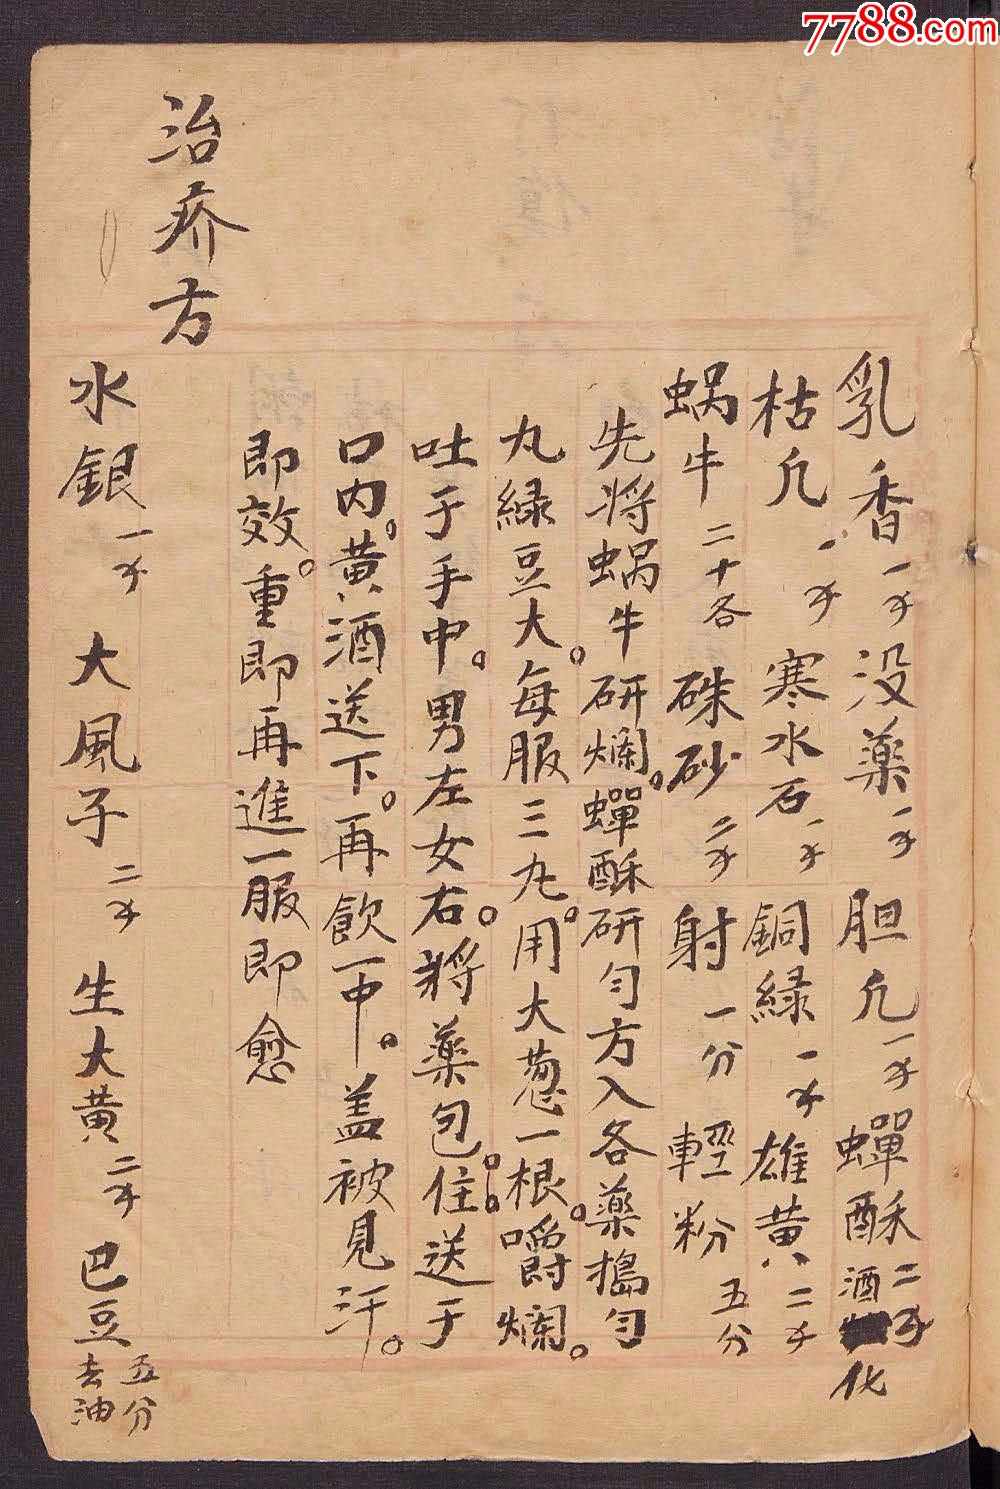 7788.com
乳香一钱没薬一钱胆凡一钱蟬酥二钱酒化
枯凡一钱寒水石一钱銅緑一钱雄黄二钱
蜗牛二十各硃砂二钱射一分輕粉五分
先将蜗牛研爛。蟬酥研匀方入各薬搗匀
丸緑豆大。每服三丸。用大葱一根。嚼爛。
吐于手中。男左女右。将薬包住。送于
口内。黄酒送下。再飲一中。盖被見汗。
即效。重即再進一服即愈
治疥方
水銀一钱大風子二钱生大黄二钱巴豆五分去油